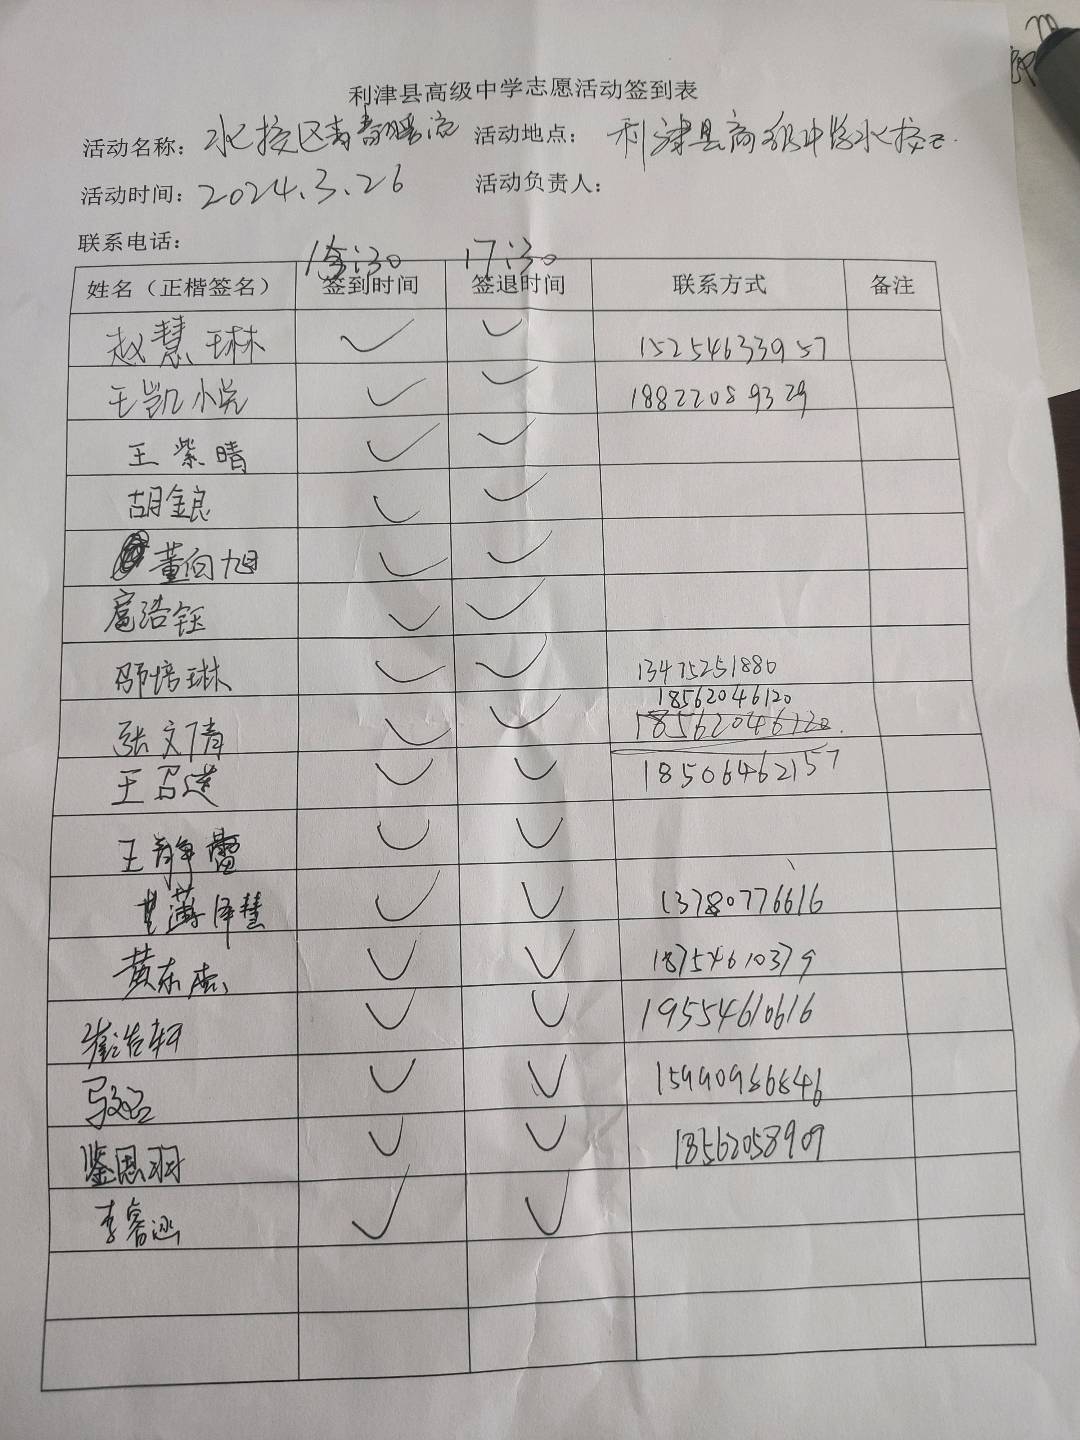 利津县高级中学志愿活动签到表
活动名称：水按区青春暖流 活动地点：利津县高级中学水按区
活动时间：2024.3.26 活动负责人：
联系电话：
15:30 17:30
姓名（正楷签名） 签到时间 签退时间 联系方式 备注
赵慧琳 ✓ ✓ 15254633957
王凯悦 ✓ ✓ 18822089329
王紫晴 ✓ ✓
胡银 ✓ ✓
董向旭 ✓ ✓
扈浩钰 ✓ ✓
邵培琳 ✓ ✓ 13475251880
18562046120
张文倩 ✓ ✓ 18562046120
王召选 ✓ ✓ 18506462157
王静蕾 ✓ ✓
薄泽慧 ✓ ✓ 13780776616
黄东杰 ✓ ✓ 18754610379
崔浩轩 ✓ ✓ 19554610616
✓ ✓ 15990986846
鉴思羽 ✓ ✓ 18562058909
李睿涵 ✓ ✓